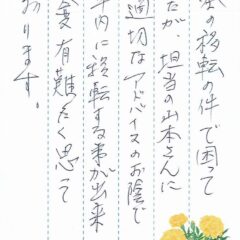 の移転の件で困って
たが、担当の山本さんに
適切なアドバイスのお陰で
年内に移転する事が出来
変有難たく思って
おります。